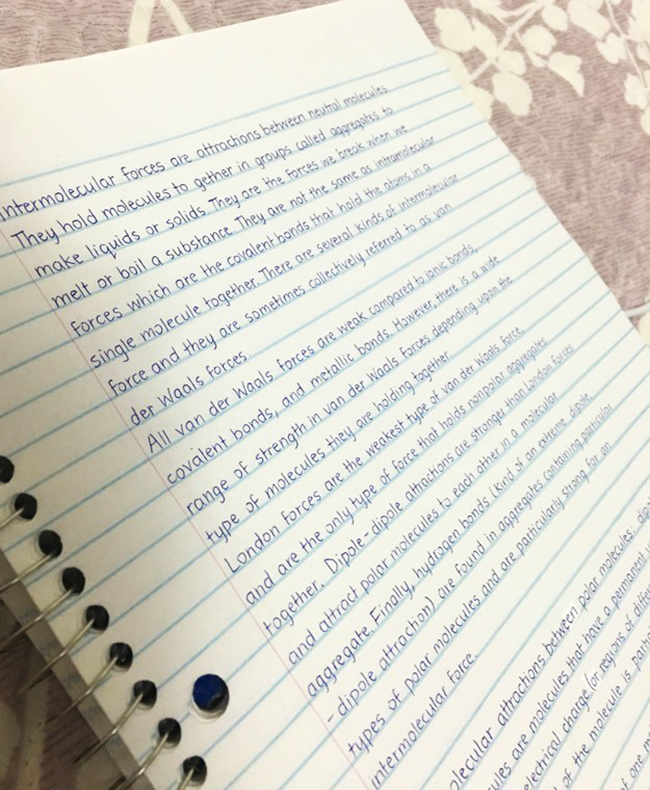 Intermolecular forces are attractions between neutral molecules
They hold molecules to gether in groups called aggregates to
make liquids or solids. They are the forces we break when we
melt or boil a substance. They are not the same as intramolecular
forces which are the covalent bonds that hold the atoms in a
single molecule together. There are several kinds of intermolecular
force and they are sometimes collectively referred to as van
der Waals forces.
All van der Waals forces are weak compared to ionic bonds,
covalent bonds, and metallic bonds. However, there is a wide
range of strength in van der Waals forces depending upon the
type of molecules they are holding together.
London forces are the weakest type of van der Waals force,
and are the only type of force that holds nonpolar aggregates
together. Dipole-dipole attractions are stronger than London forces
and attract polar molecules to each other in a molecular
aggregate. Finally, hydrogen bonds (kind of an extreme dipole
- dipole attraction) are found in aggregates containing particular
types of polar molecules and are particularly strong for an
intermolecular force.
attractions between polar molecules.
are molecules that have a permanent
electrical charge for regions of
of the molecule is
of one